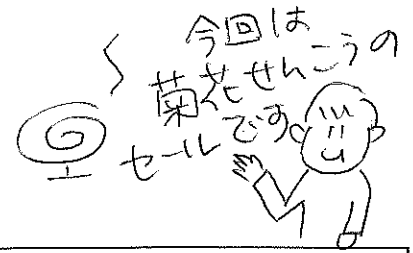 今回は
菊花せんこうの
セールです